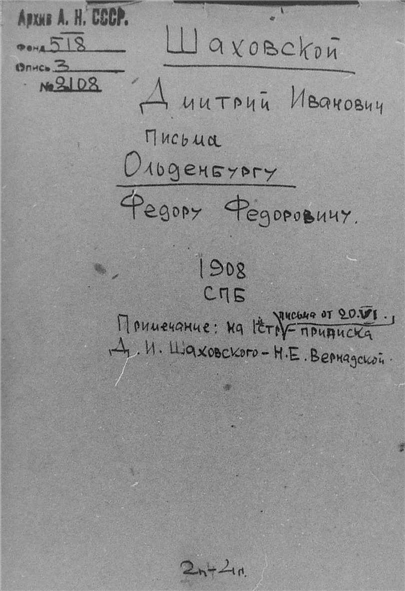 Архив А. Н. СССР.
Фонд 518
Опись 3
№ 2108
Шаховской
Дмитрий Иванович
Письма
Ольденбургу
Федору Федоровичу.
1908
СПБ
письма от 20.VI.,
Примечание: на 1й стр. – приписка
Д. И. Шаховского – Н. Е. Вернадской.